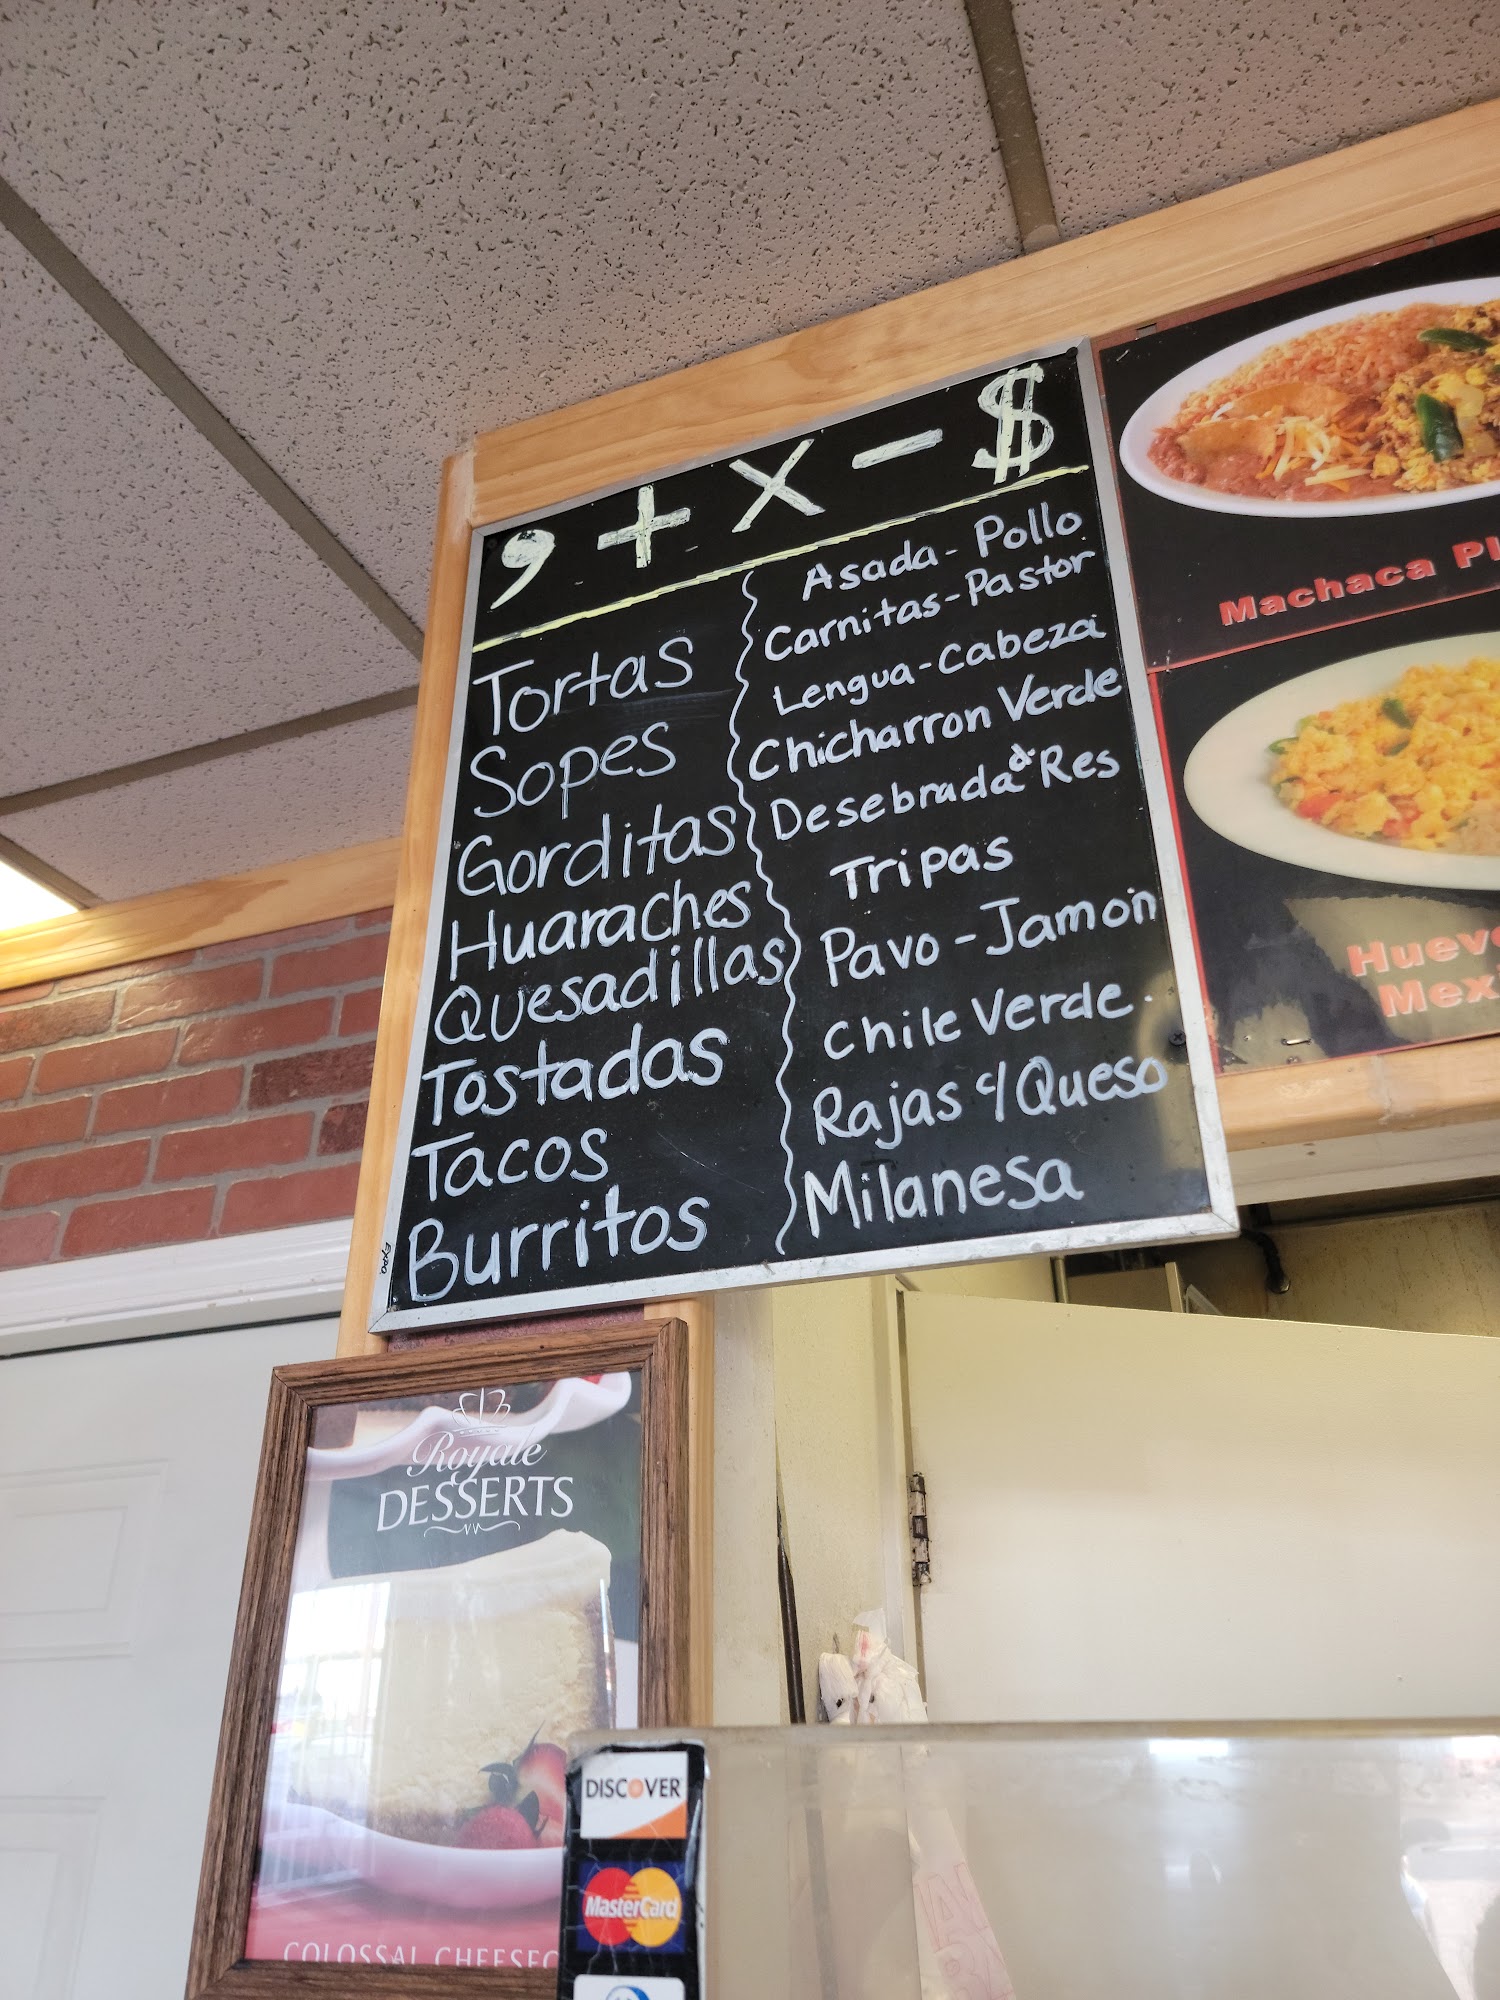 , + x - $
Tortas
Sopes
Gorditas
Huaraches
Quesadillas
Tostadas
Tacos
Burritos
Asada - Pollo
Carnitas - Pastor
Lengua - Cabeza
Chicharron Verde
Desebrada d. Res
Tripas
Pavo - Jamon
Chile Verde.
Rajas c/ Queso
Milanesa
EXPO
Machaca
Mex
Royale
DESSERTS
COLOSSAL
DISCOVER
MasterCard